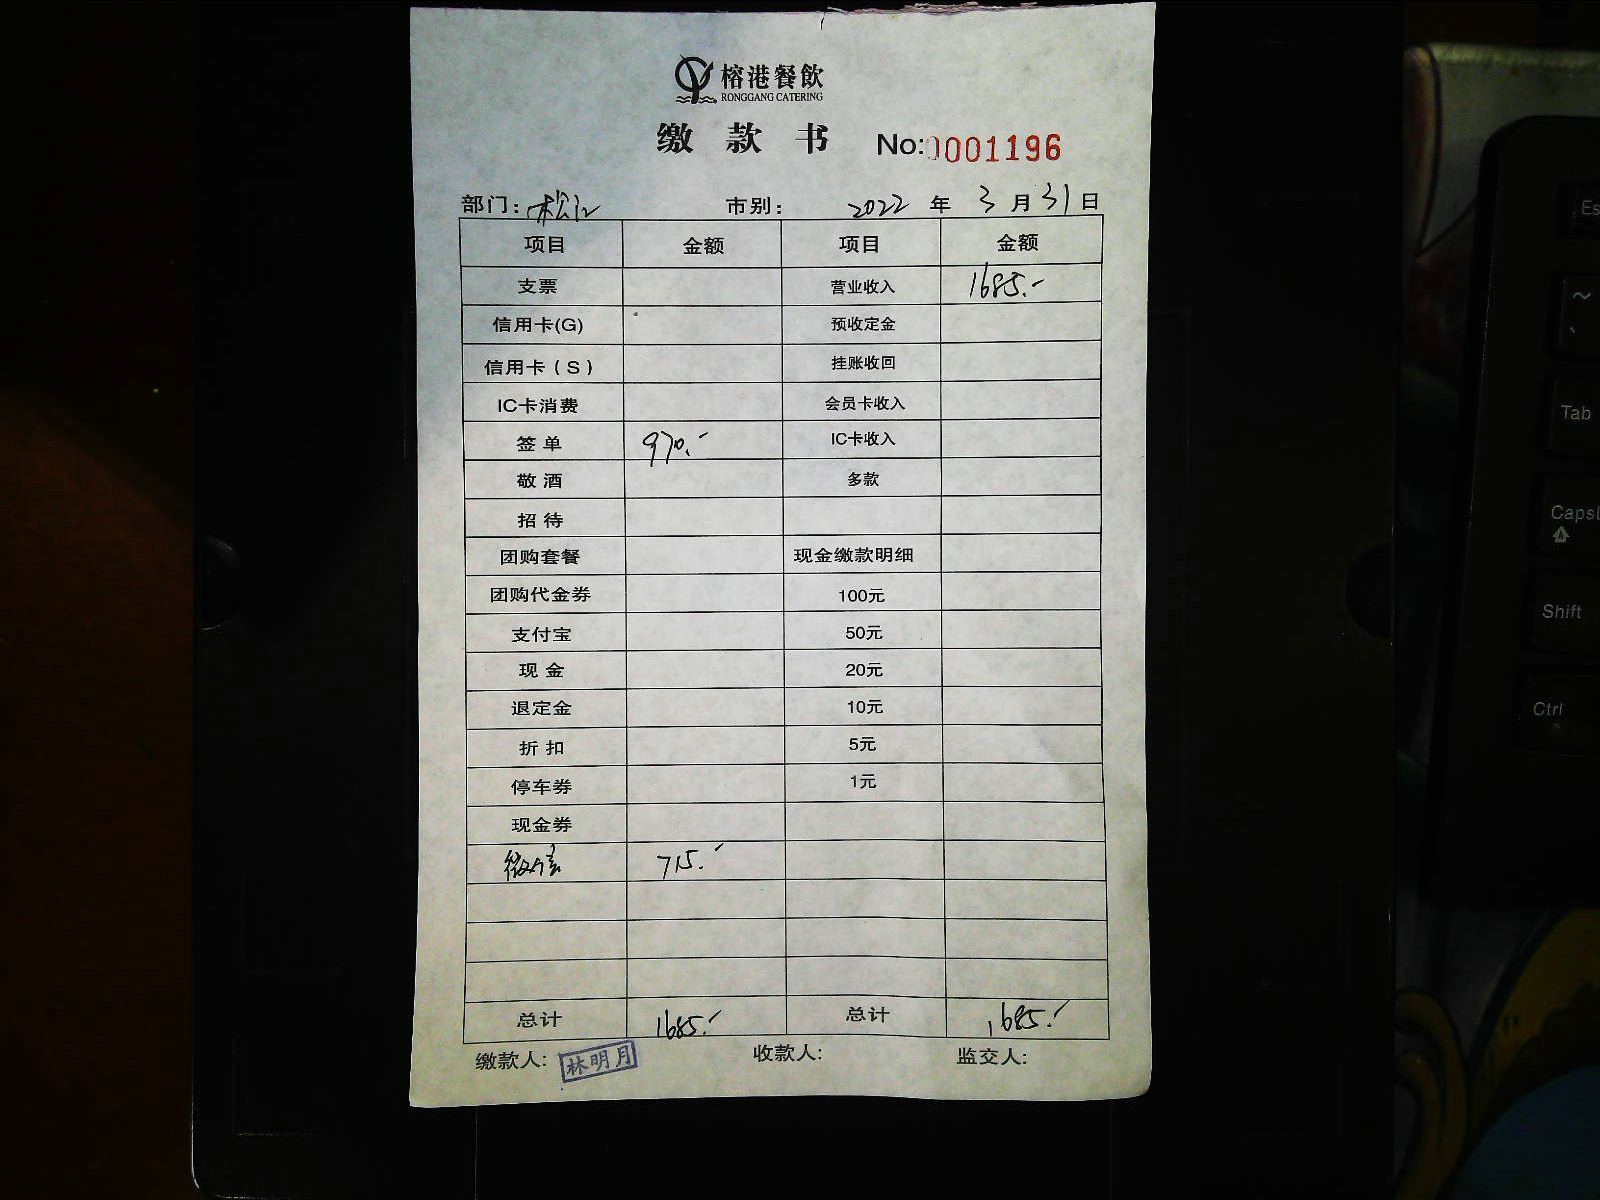 榕港餐飲
RONGGANG CATERING
缴 款 书 No:0001196
部门: 松江 市别: 2022 年 3 月 31 日
项目 金额 项目 金额
支票 营业收入 1685.-
信用卡(G) 预收定金
信用卡(S) 挂账收回
IC卡消费 会员卡收入
签单 970.- IC卡收入
敬酒 多款
招待
团购套餐 现金缴款明细
团购代金券 100元
支付宝 50元
现金 20元
退定金 10元
折扣 5元
停车券 1元
现金券
715.-
总计 1685.- 总计 1685.-
缴款人: 林明月 收款人: 监交人:
~
、
Tab
Caps
Shift
Ctrl
Es